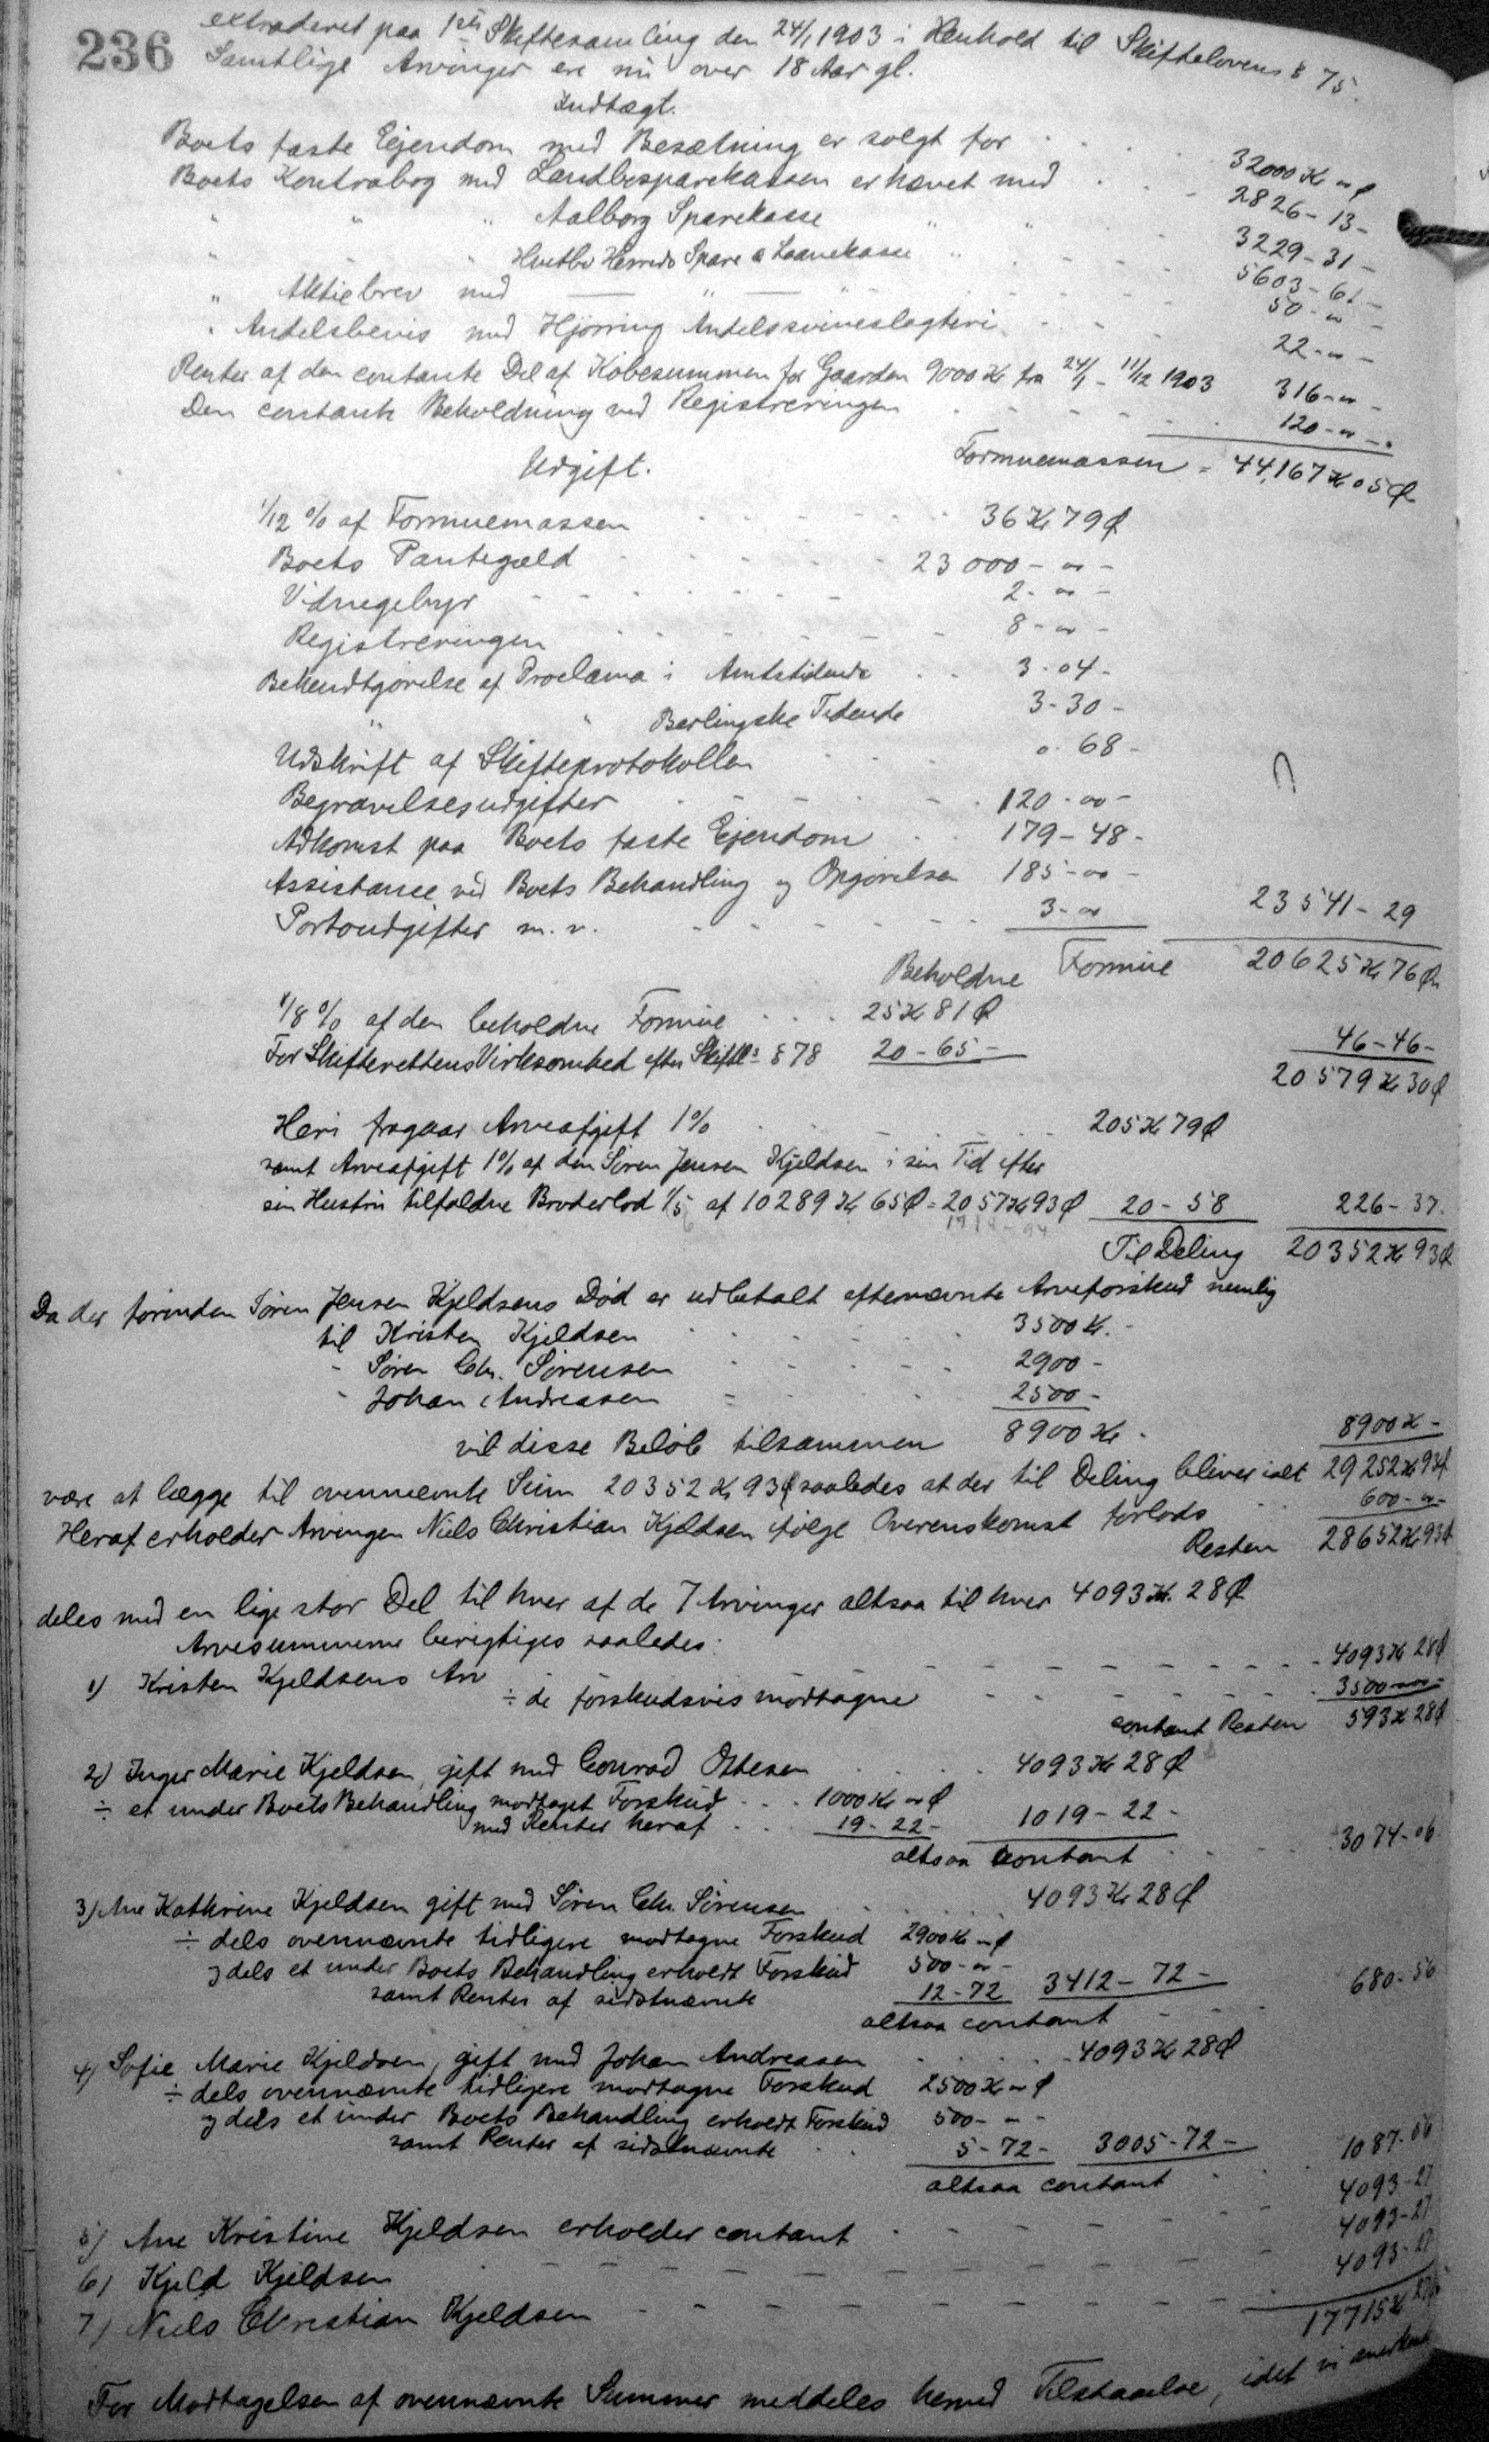 236
extraderet paa 1ste Skiftesamling den 24/1 1903 i Henhold til Skiftelovens § 75.
Samtlige Arvinger ere nu over 18 Aar gl.
Indtægt.
Boets faste Ejendom med Besætning er solgt for 32000 Kr "" Ø
Boets Kontrabog med Landbosparekassen er hævet med 2826 - 13 -
" " " Aalborg Sparekasse " " 3229 - 31 -
" " " Hvetbo Herreds Spare & Laanekasse " 5603 - 61 -
" Aktiebrev med — " — " 50 - "" -
" Andelsbevis med Hjørring Andelssvineslagteri 22 - "" -
Renter af den contante Del af Købesummen for Gaarden 9000 Kr fra 24/1 - 11/12 1903 316 - "" -
Den contante Beholdning ved Registreringen 120 - "" -
Formuemassen = 44,167 Kr 05 Ø
Udgift.
1/12 % af Formuemassen 36 Kr 79 Ø
Boets Pantegæld 23000 - "" -
Vidnegebyr 2 - "" -
Registreringen 8 - "" -
Bekendtgørelse af Proclama i Amtstidende 3 - 04 -
" " Berlingske Tidende 3 - 30 -
Udskrift af Skifteprotokollen 0 - 68 -
Begravelsesudgifter 120 - 00 -
Adkomst paa Boets faste Ejendom 179 - 48 -
Assistance ved Boets Behandling og Opgørelsen 185 - 00 -
Portoudgifter m. v. 3 - "" 23541 - 29
Beholdne Formue 20625 Kr 76 Ø
1/8 % af den beholdne Formue 25 Kr 81 Ø
For Skifterettens Virksomhed efter Skiftl. § 78 20 - 65 - 46 - 46 -
20579 Kr 30 Ø
Heri fragaar Arveafgift 1 % 205 Kr 79 Ø
samt Arveafgift 1 % af den Søren Jensen Kjeldsen i sin Tid efter
sin Hustru tilfaldne Broderlod 1/5 af 10289 Kr 65 Ø = 2057 Kr 93 Ø 20 - 58 226 - 37.
Til Deling 20352 Kr 93 Ø
Da der forinden Søren Jensen Kjeldsens Død er udbetalt efternævnte Arveforskud nemlig
til Kristen Kjeldsen 3500 Kr. -
- Søren Chr. Sørensen 2900 -
- Johan Andreasen 2500 -
vil disse Beløb tilsammen 8900 Kr. 8900 Kr -
være at lægge til ovennævnte Sum 20352 Kr 93 Ø saaledes at der til Deling bliver ialt 29252 Kr 93 Ø
Heraf erholder Arvingen Niels Christian Kjeldsen ifølge Overenskomst forlods 600 - "" -
Resten 28652 Kr 93 Ø
deles med en lige stor Del til hver af de 7 Arvinger altsaa til hver 4093 Kr. 28 Ø
Arvesummerne berigtiges saaledes:
1) Kristen Kjeldsens Arv 4093 Kr 28 Ø
÷ de forskudsvis modtagne 3500 - "" -
contant Resten 593 Kr 28 Ø
2) Inger Marie Kjeldsen, gift med Conrad Ottesen 4093 Kr 28 Ø
÷ et under Boets Behandling modtaget Forskud 1000 Kr "" Ø
med Renter heraf 19 - 22 - 1019 - 22 -
altsaa contant 3074 - 06
3) Ane Kathrine Kjeldsen gift med Søren Chr. Sørensen 4093 Kr 28 Ø
÷ dels ovennævnte tidligere modtagne Forskud 2900 Kr "" Ø
og dels et under Boets Behandling erholdt Forskud 500 - "" -
samt Renter af sidstnævnte 12 - 72 3412 - 72 -
altsaa contant 680 - 56
4) Sofie Marie Kjeldsen, gift med Johan Andreasen 4093 Kr 28 Ø
÷ dels ovennævnte tidligere modtagne Forskud 2500 Kr "" Ø
og dels et under Boets Behandling erholdt Forskud 500 - " -
samt Renter af sidstnævnte 5 - 72 - 3005 - 72 -
altsaa contant 1087 - 56
5) Ane Kristine Kjeldsen erholder contant 4093 - 27
6) Kjeld Kjeldsen 4093 - 27
7) Niels Christian Kjeldsen 4093 - 27
17715 Kr
For Modtagelsen af ovennævnte Summer meddeles herved Tilstaaelse, idet vi anerkende